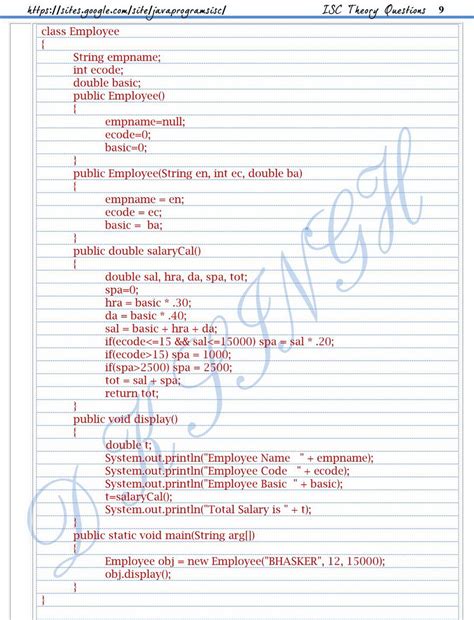 https://sites.google.com/site/javaprogramsisc/ ISC Theory Questions 9
class Employee
{
String empname;
int ecode;
double basic;
public Employee()
{
empname=null;
ecode=0;
basic=0;
}
public Employee(String en, int ec, double ba)
{
empname = en;
ecode = ec;
basic = ba;
}
public double salaryCal()
{
double sal, hra, da, spa, tot;
spa=0;
hra = basic * .30;
da = basic * .40;
sal = basic + hra + da;
if(ecode<=15 && sal<=15000) spa = sal * .20;
if(ecode>15) spa = 1000;
if(spa>2500) spa = 2500;
tot = sal + spa;
return tot;
}
public void display()
{
double t;
System.out.println("Employee Name " + empname);
System.out.println("Employee Code " + ecode);
System.out.println("Employee Basic " + basic);
t=salaryCal();
System.out.println("Total Salary is " + t);
}
public static void main(String arg[])
{
Employee obj = new Employee("BHASKER", 12, 15000);
obj.display();
}
}
D K SINGH